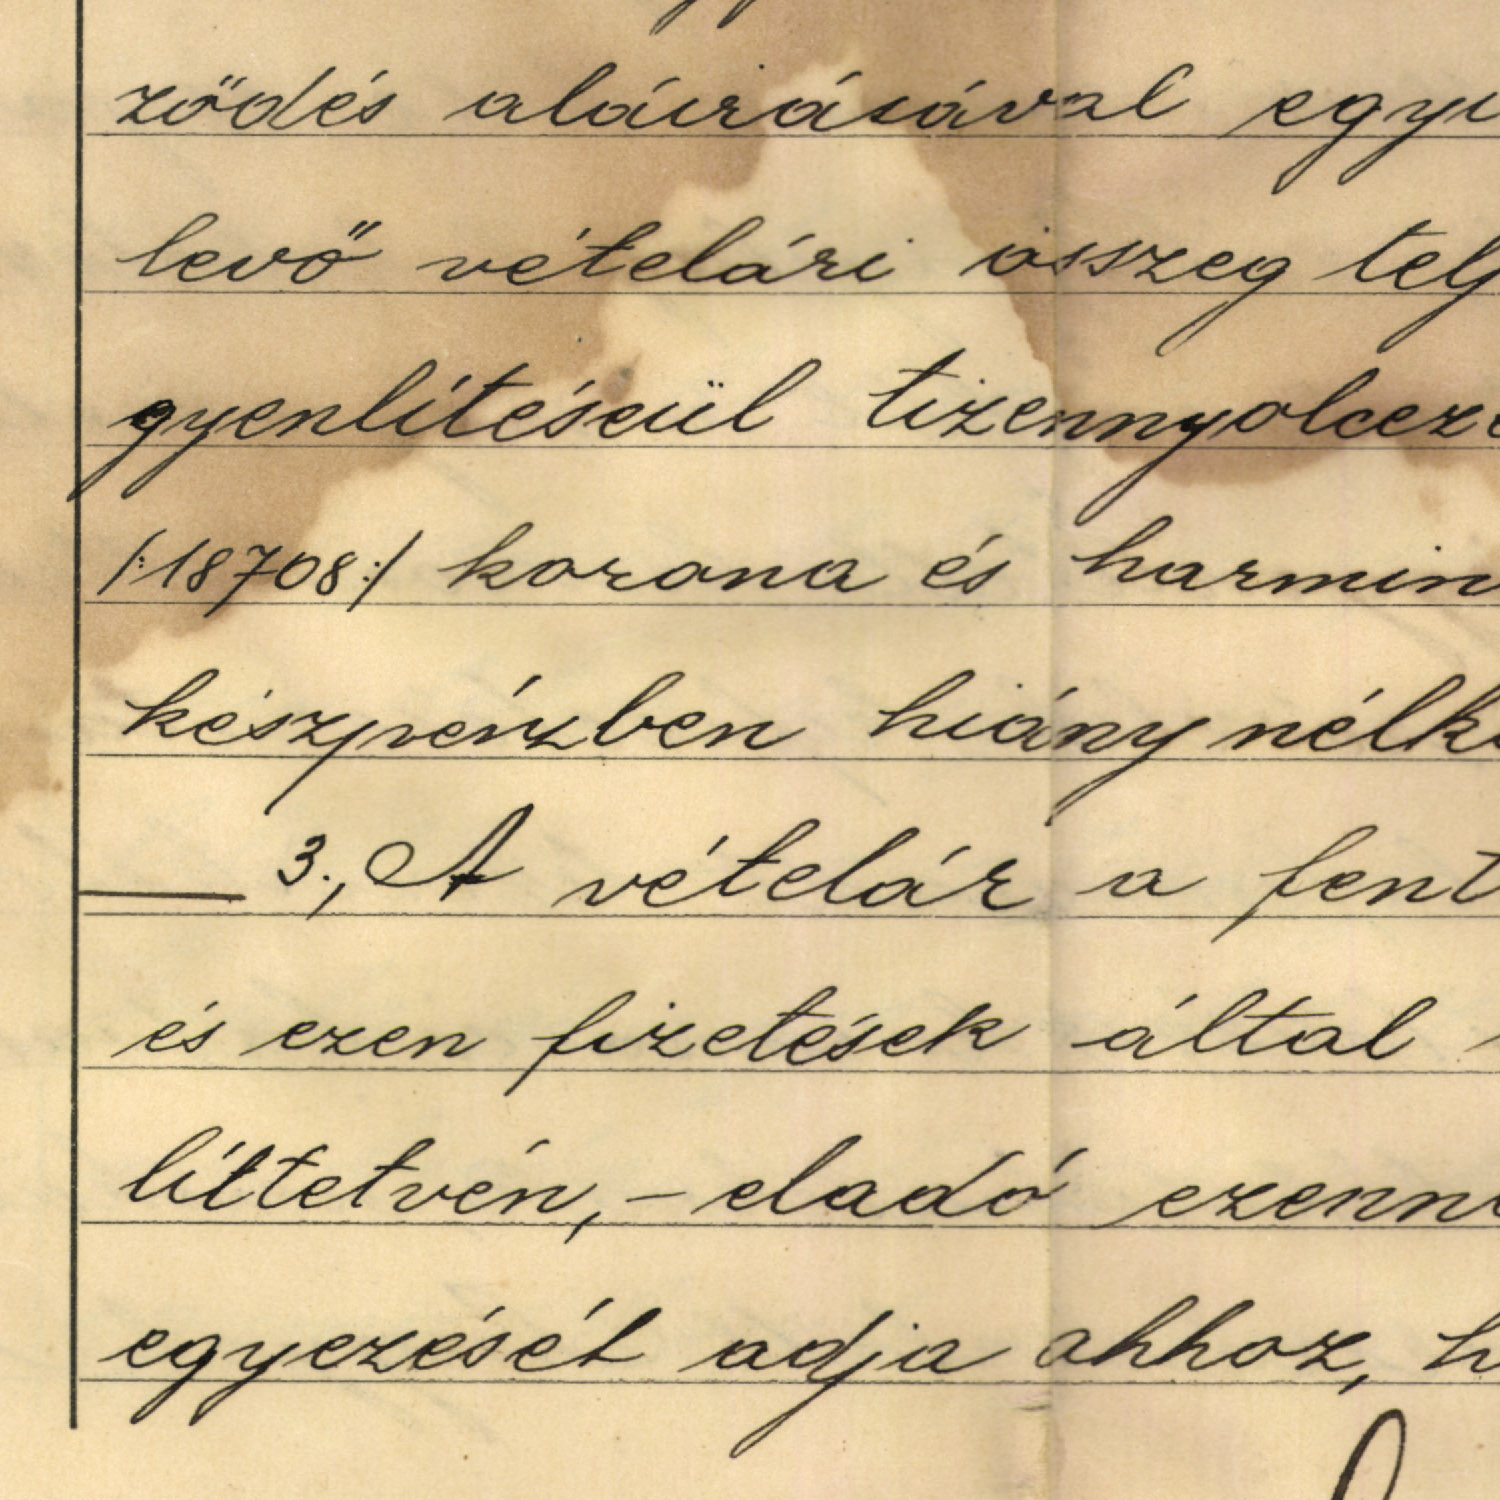 ződés aláirásával egyi
levő vételári összeg telj
gyenlítéséül tizennyolceze
/:18708:/ korona és harmin
készpénzben hiány nélkü
3., A vételár a fent
és ezen fizetések által
líttetvén, – eladó ezenne
egyezését adja ahhoz, h